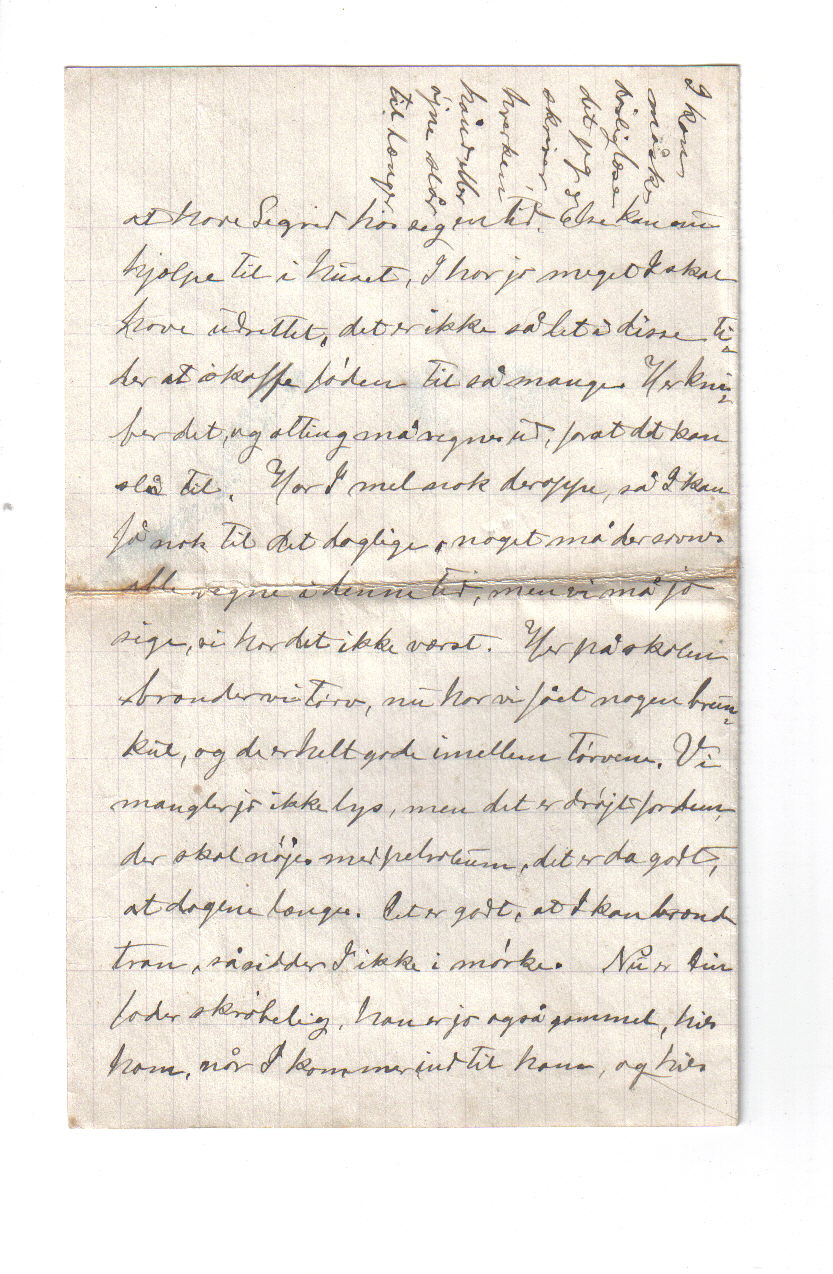 I kan
måske
dårlig læse
det jeg
skriver
hverken
hånd eller
öjne slår
til længer
at have Sigrid hos seg en tid. Else kan nu
hjælpe til i huset, I har jo meget I skal
have udrettet, det er ikke så let i disse ti=
der at skaffe föden til så mange. Her kni=
ber det, og alting må regnes ud, for at det kan
slå til. Har I mel nok deroppe, så I kan
få nok til det daglige, noget må der savnes
alle vegne i denne tid, men vi må jo
sige, vi har det ikke værst. Her på skolen
brænder vi törv, nu har vi fået nogen brun=
kul, og de er helt gode imellem törvene. Vi
mangler jo ikke lys, men det er dröjt for dem,
der skal nöjes med petroleum, det er da godt,
at dagene længes. Det er godt, at I kan brænde
tran, så sidder I ikke i mörke. Nu er Din
fader skröbelig, han er jo også gammel, hils
ham, når I kommer ind til ham, og hils